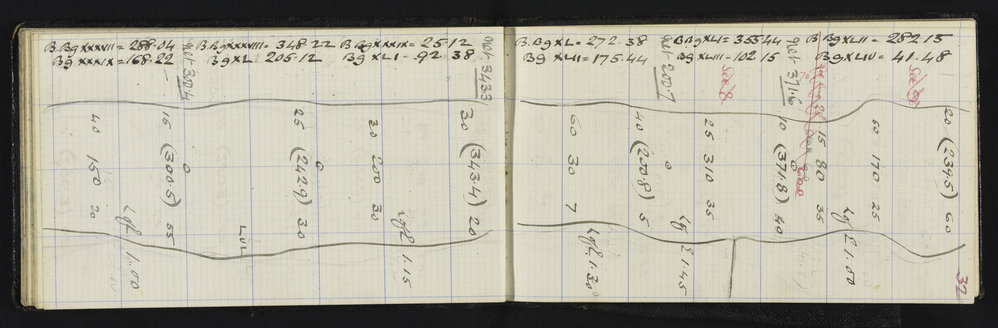 B.Bg XXXVII = 288·04 B.Bg XXXVIII = 348·22 B Bg XXXIX = 25·12
Bg XXXIX = 168·22 Bg XL = 205·12 Bg XLI = 92 38
net 300·4
net 343·3
40 150 20
15 0 (300·5) 55
25 0 (242·9) 30
30 200 30
30 (343·4) 20
Lgft 1.00
LUL
Lgft 1.15
B.Bg XL = 272·38 B.Bg XLI = 353·44 B Bg XLII = 282 15
Bg XLII = 175·44 Bg XLIII = 102 15 Bg XLIV = 41·48
net 200·7
net 371·6
60 30 7
40 0 (200·8) 5
25 310 35
10 0 (371·8) 40
15 80 35
60 170 25
20 (239·5) 60
Lgft 1.30
Lg ft 1.45
Lg ft 1.00
32